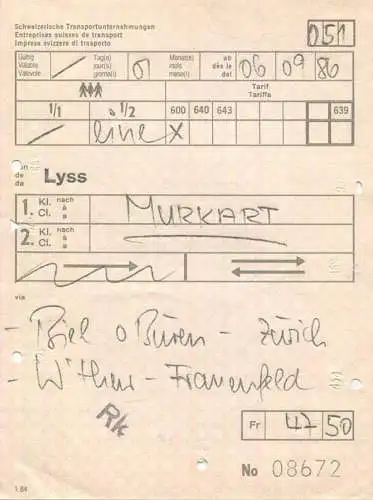 Schweizerische Transportunternehmungen
Entreprises suisses de transport
Imprese svizzere di trasporto
051
Gültig Tag(e) Monat(e) ab
Valable jour(s) mois dès le
Valevole giorno(i) mese(i) dal
06 09 86
Tarif
Tariffa
1/1 1/2 600 640 643 639
eine X
von
de
da
Lyss
1. Kl. nach
Cl. à
a
MURKART
2. Kl. nach
Cl. à
a
via
- Biel o Büren - Zürich
- W'thur - Frauenfeld
Rk
Fr 47 50
No 08672
1 84